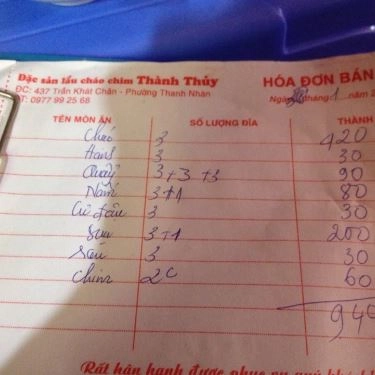 Đặc sản lẩu cháo chim Thành Thủy
HÓA ĐƠN BÁN
ĐC: 437 Trần Khát Chân - Phường Thanh Nhàn
ĐT: 0977 99 25 68
Ngày tháng 1 năm 2
TÊN MÓN ĂN SỐ LƯỢNG DĨA THÀNH
3 420
3 30
Quẩy 3+3+3 90
Nấm 3+1 80
3 30
3+1 200
3 30
Chim 2c 60
940
Rất hân hạnh được phục vụ quý